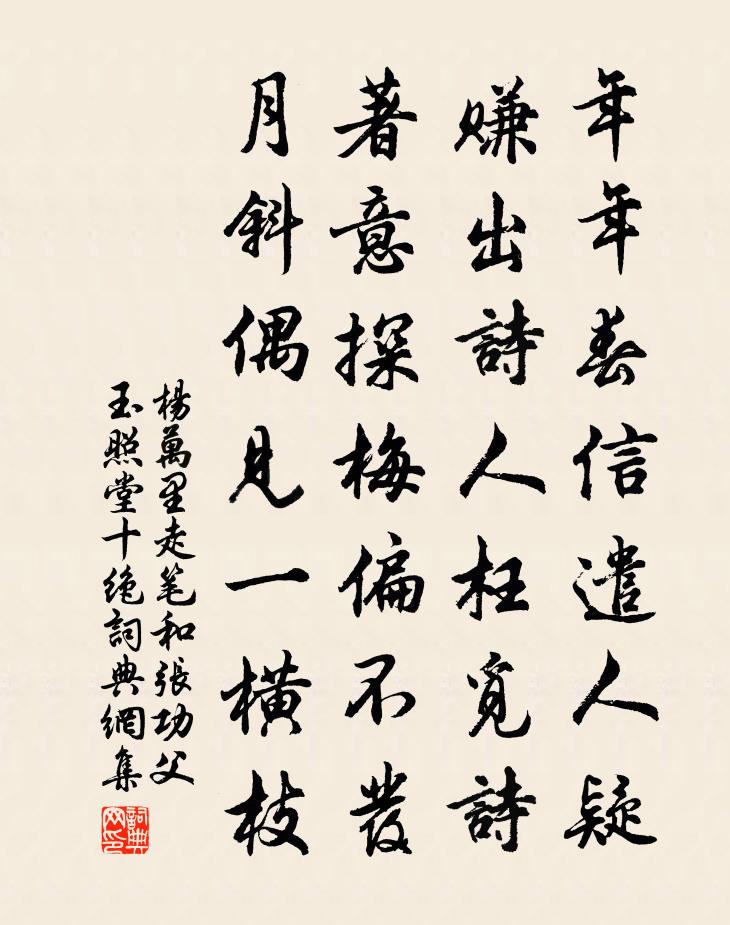 年年春信遣人疑
賺出詩人枉覓詩
著意探梅偏不發
月斜偶見一橫枝
楊萬里走笔和張功父
玉照堂十绝詞典網集
詞典
网印